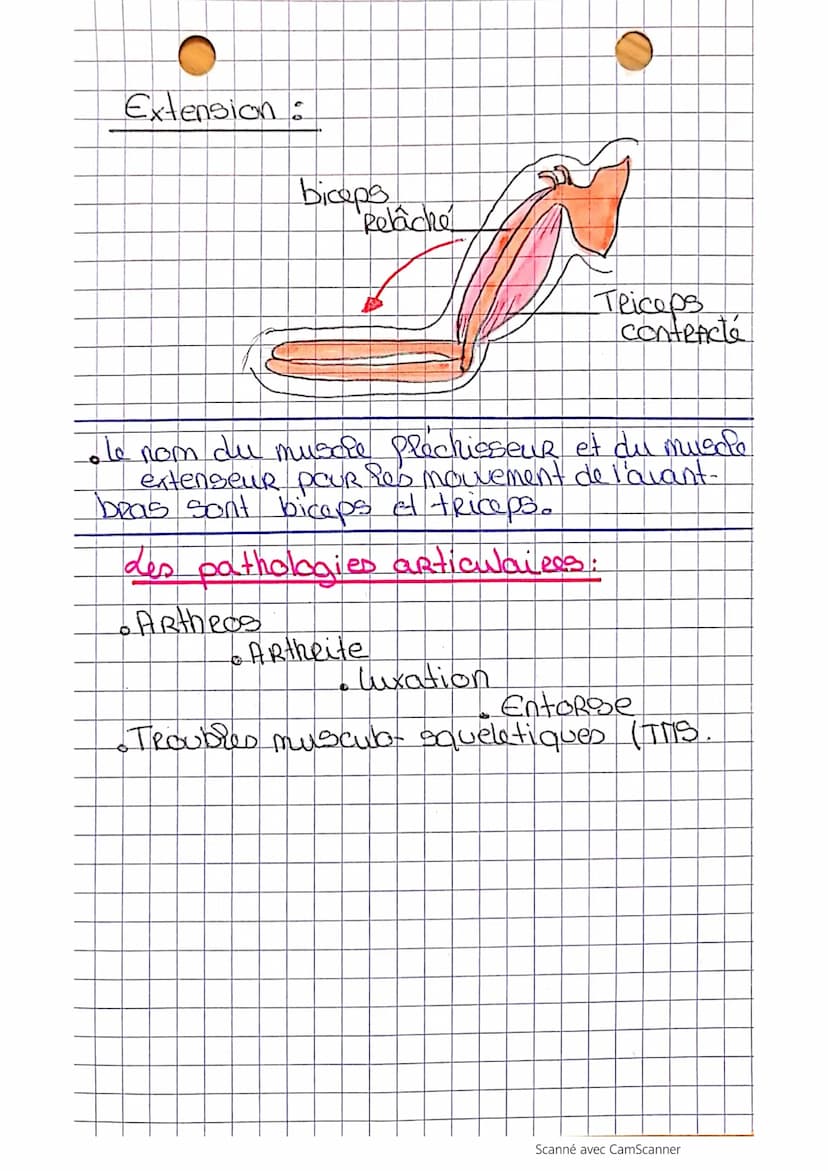 Extension :
biceps
Relâché
Triceps
contracté
• Le nom du muscle fléchisseur et du muscle
extenseur pour les mouvement de l'avant-
bras sont biceps et triceps.
des pathologies articulaires :
• Arthros
• Arthrite
• Luxation
• Entorse
• Troubles musculo-squeletiques (TMS.
Scanné avec CamScanner